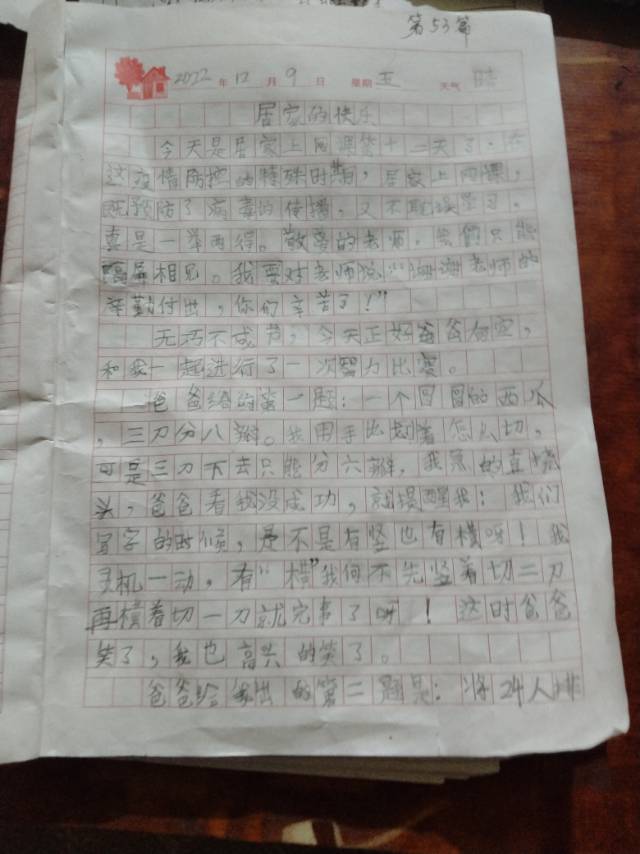 第53篇
2022年12月9日 星期五 天气 晴
居家的快乐
今天是居家上网课第十二天了。在
这疫情防控的特殊时期，居家上网课，
既预防了病毒的传播，又不耽误学习，
真是一举两得。敬爱的老师，我们只能
隔屏相见。我要对老师说："谢谢老师的
辛勤付出，你们辛苦了！"
无巧不成书，今天正好爸爸有空，
和我一起进行了一次智力比赛。
爸爸给的第一题：一个圆圆的西瓜
，三刀分八瓣。我用手比划着怎么切，
可是三刀下去只能分六瓣，我急的直挠
头，爸爸看我没成功，就提醒我：我们
写字的时候，是不是有竖也有横呀！我
灵机一动，有"横"我何不先竖着切二刀
再横着切一刀就完事了呀！这时爸爸
笑了，我也高兴的笑了。
爸爸给我出的第二题是：将24人排